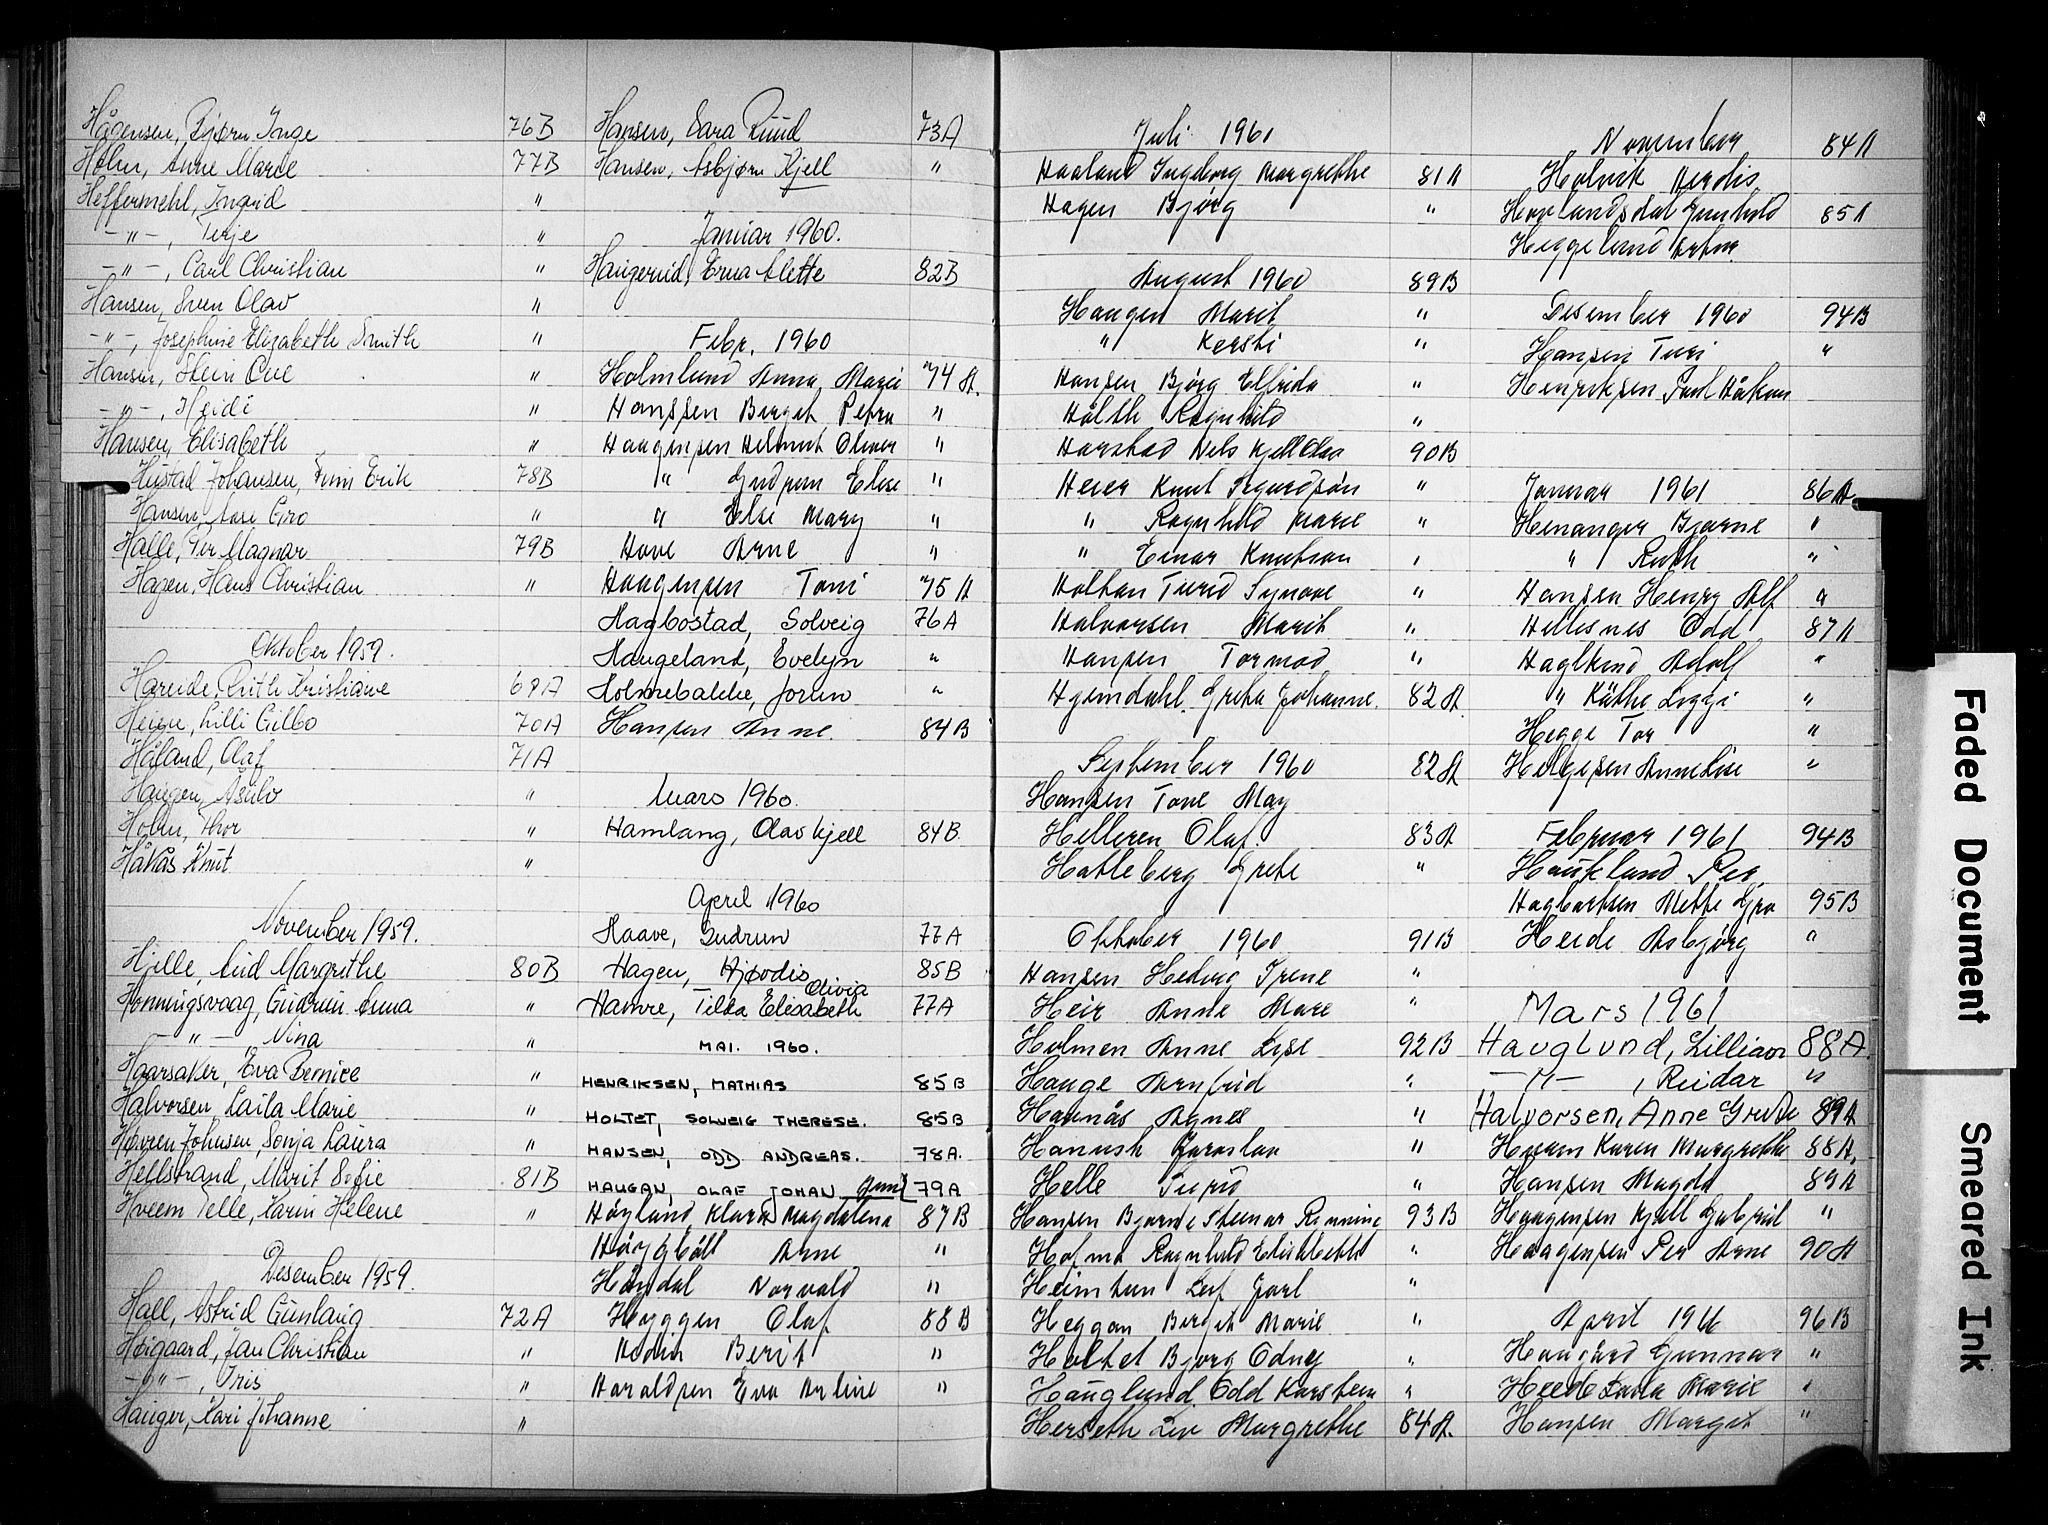 Hågensen, Bjørn Inge 76B
Holm, Anne Marie 77B
Heffermehl, Ingrid "
-"-, Terje "
-"-, Carl Christian "
Hansen, Sven Olav "
-"-, Josephine Elizabeth Smith "
Hansen, Stein Ove "
-"-, Heidi "
Hansen, Elisabeth "
Hustad Johansen, Finn Erik 78B
Hansen, Aase Gro "
Halle, Per Magnar 79B
Hagen, Hans Christian "
Oktober 1959.
Hareide, Ruth Kristiane 69A
Heien, Lilli Gilbo 70A
Håland, Olaf 71A
Haugen, Asulv "
Holm, Thor "
Håkås Knut "
November 1959.
Hjelle, Aud Margrethe 80B
Honningsvaag, Gudrun Anna "
-"-, Nina "
Haarsaker, Eva Bernice "
Halvorsen, Laila Marie "
Hovren Johnsen, Sonja Laura "
Hellstrand, Marit Sofie 81B
Hveem Telle, Karin Helene "
Desember 1959.
Hall, Astrid Gunlaug 72A
Høigaard, Jan Christian "
-"-, Iris "
Hauger, Kari Johanne "
Hansen, Sara Ruud 73A
Hansen, Asbjørn Kjell "
Januar 1960.
Haugerud, Erna Alette 82B
Febr. 1960
Holmlund Anna Marie 74A.
Hanssen Bergit Petra "
Haagensen Helmut Oliver "
" Gudrun Elise "
" Else Mary "
Hove Arne "
Haagensen Toni 75A
Hagbostad, Solveig 76A
Haugeland, Evelyn "
Holmebakke, Jorun "
Hansen Anne 84B
Mars 1960.
Hamlang, Olav Kjell 84B.
April 1960
Haave, Gudrun 77A
Hagen, Hjørdis Olivia 85B
Hamre, Tilda Elisabeth 77A
MAI. 1960.
HENRIKSEN, MATHIAS 85B
HOLTET, SOLVEIG THERESE. 85B
HANSEN, ODD ANDREAS. 78A.
HAUGAN, OLAF JOHAN 79A
Høyland, Klara Magdalena 87B
Arne "
Norvald "
Heggen Olaf 88B
Hodin Berit "
Haraldsen Eva Arline "
Juli 1960
Haaland Ingeborg Margrethe 81A
Hagen Bjørg "
August 1960 89B
Haugen Marit "
" Kersti "
Hansen Bjørg Elfrida "
Hålth Ragnhild "
Harstad Nels Kjell Olav 90B
Heier Knut Sigurdsøn "
" Ragnhild Marie "
" Einar Knutson "
Holthan Turid Synøve "
Halvorsen Marit "
Hansen Tormod "
Hjemdahl. Greta Johanne. 82A
September 1960 82A
Hansen Tove May
Helleren Olaf. 83A
Hatleberg Grete "
Oktober 1960 91B
Hansen Hedvig Irene "
Heir Anne Mare "
Holmen Anne Lise 92B
Hauge Arnfrid "
Hasnås Agnes "
Hanush Jaroslav "
Helle Turid "
Hansen Bjarne Steinar Rønning 93B
Hofmo Ragnhild Elisabeth "
Heimtun Leif Jarl "
Heggan Bergit Marie "
Holtet Bjørg Odney "
Hauglund. Odd Karstein "
Herseth Liv Margrethe 84A.
November 84A
Holvik Herdis
Hovlandsdal Gunhild 85A
Heggelund Arthur
Desember 1960 94B
Hansen Turi "
Henriksen Paul Håkon
Januar 1961 86A
Henanger Bjarne "
" Ruth "
Hansen Henry Alf "
Hellesnes Odd 87A
Haglund Adolf "
" Käthe Liggi "
Hegge Tor "
Helgesen Anne Lise "
Februar 1961 94B
Hauklund Per
Hagbartsen Mette Gro 95B
Heide Asbjørg "
Mars 1961
Hauglund, Lillian 88A.
-"-, Reidar "
Halvorsen, Anne Grete 89A
Hveem Karen Margrethe 88A.
Hansen Magda 89A
Haagensen Kjell Gabriel "
Haagensen Per Arne 90A
April 1961 96B
Haugård Gunnar "
Heede Laila Marie "
Hansen Margit "
Faded Document
Smeared Ink